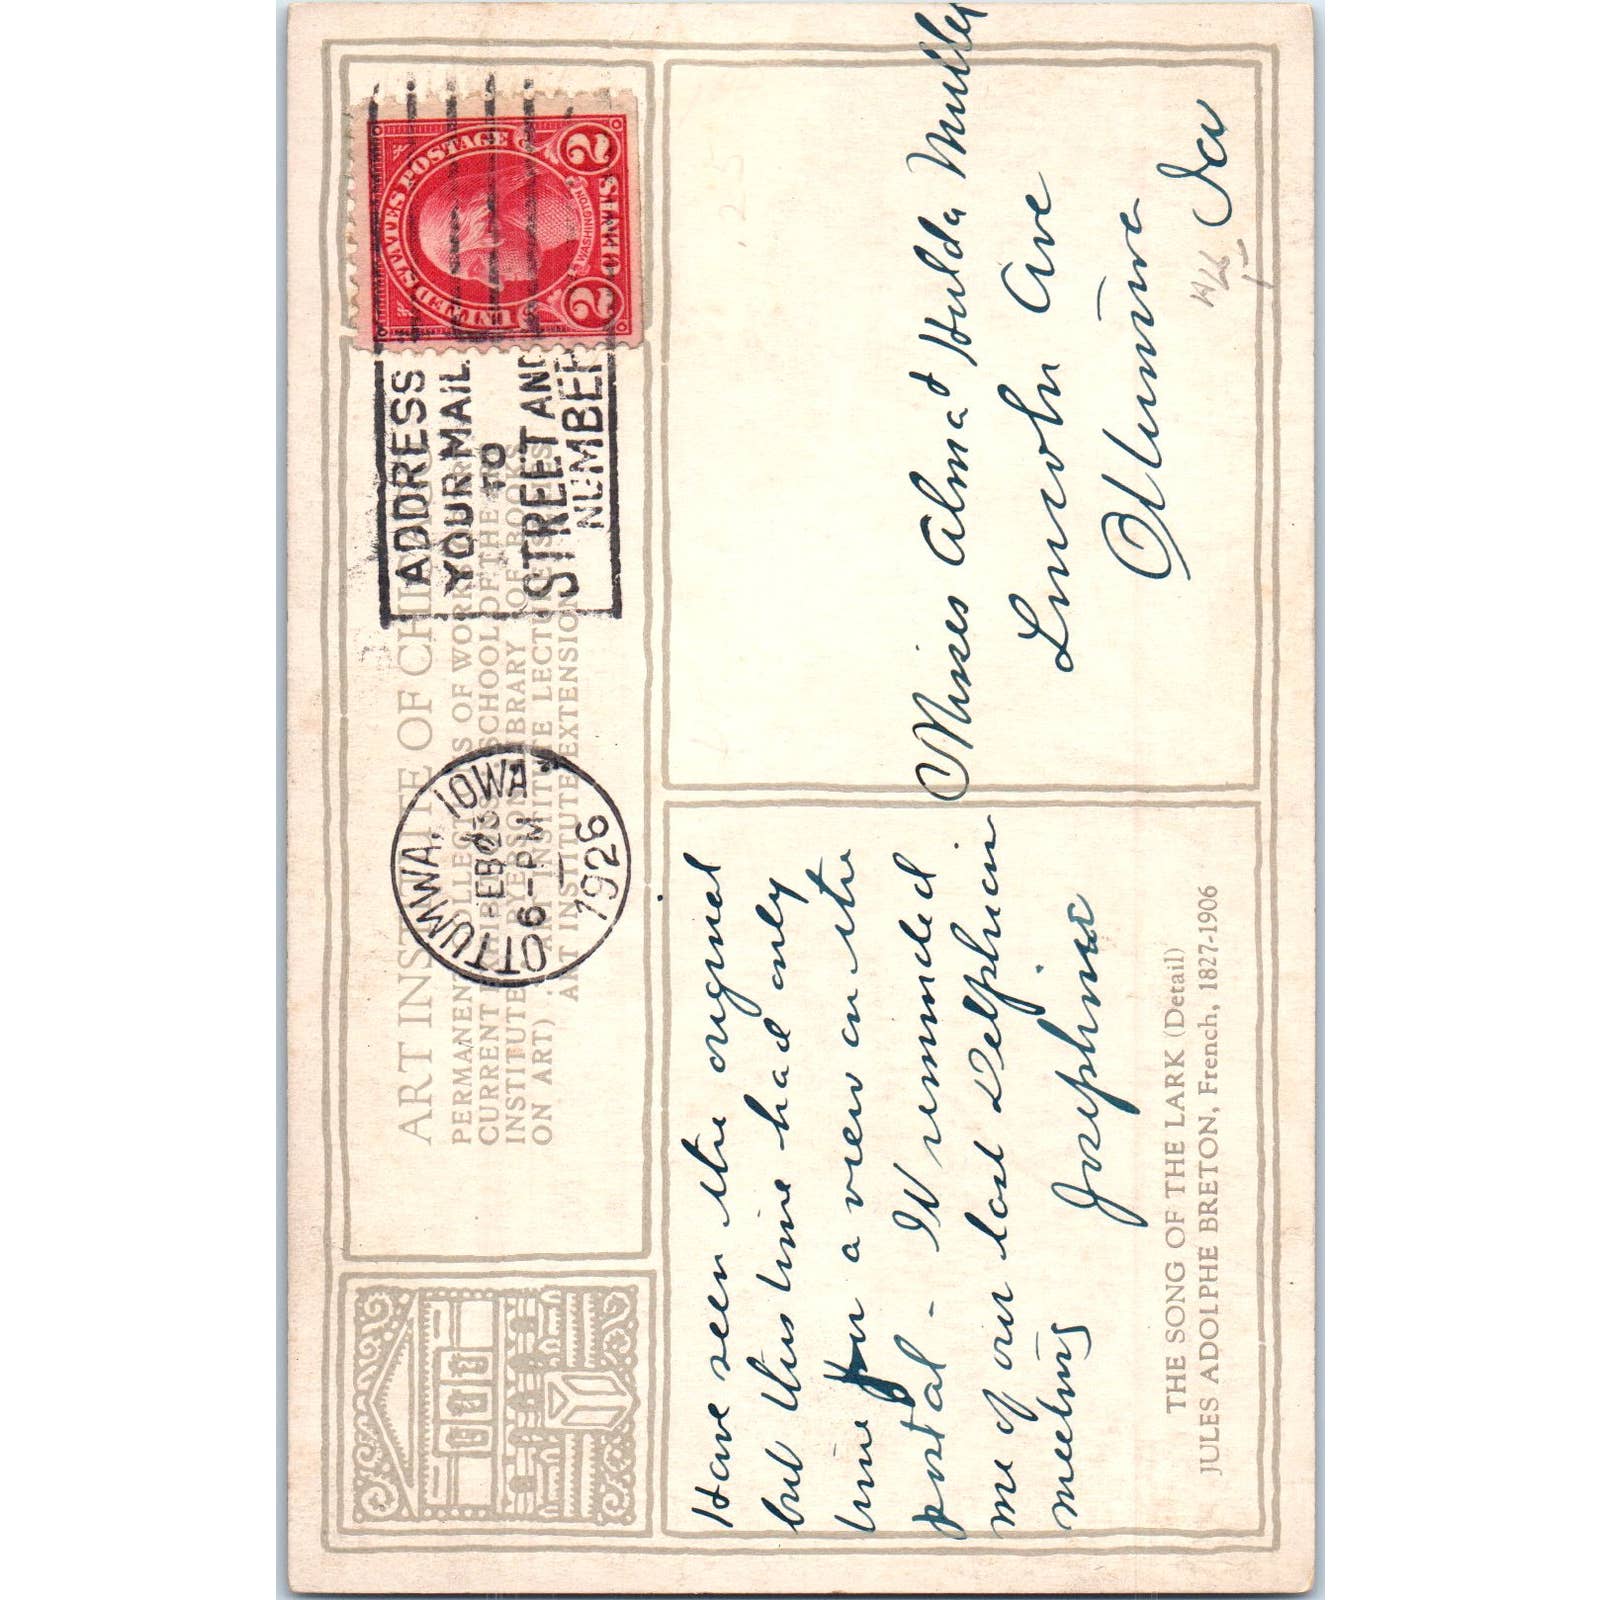 ART INSTITUTE OF CHICAGO
PERMANENT COLLECTIONS OF WORKS OF ART
CURRENT EXHIBITIONS SCHOOL OF THE ART
INSTITUTE RYERSON LIBRARY (OF BOOKS
ON ART) ART INSTITUTE LECTURES THE
ART INSTITUTE EXTENSION
OTTUMWA, IOWA
FEB 23
6-PM
1926
ADDRESS
YOUR MAIL
TO
STREET AND
NUMBER
UNITED STATES POSTAGE
WASHINGTON
2 CENTS 2
Have seen the orignal
but this time had only
time for a view on the
postal - It reminded
me of our last Delphian
meeting
Josephine
THE SONG OF THE LARK (Detail)
JULES ADOLPHE BRETON, French, 1827-1906
Misses Alma & Hulda Muller
Lincoln Ave
Ottumwa
Ia